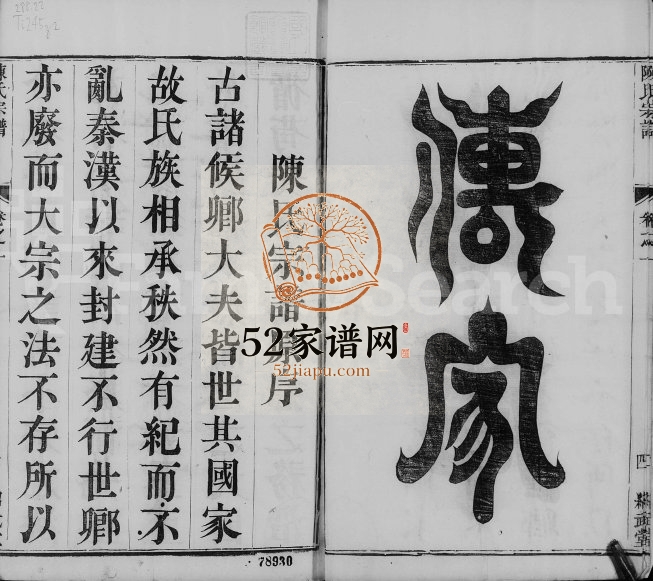 傳家
陳氏宗譜
四
陳氏宗譜原序
古諸候卿大夫皆世其國家
故氏族相承秩然有紀而不
亂秦漢以來封建不行世卿
亦廢而大宗之法不存所以
陳氏宗譜
52家谱网
52jiapu.com
78930